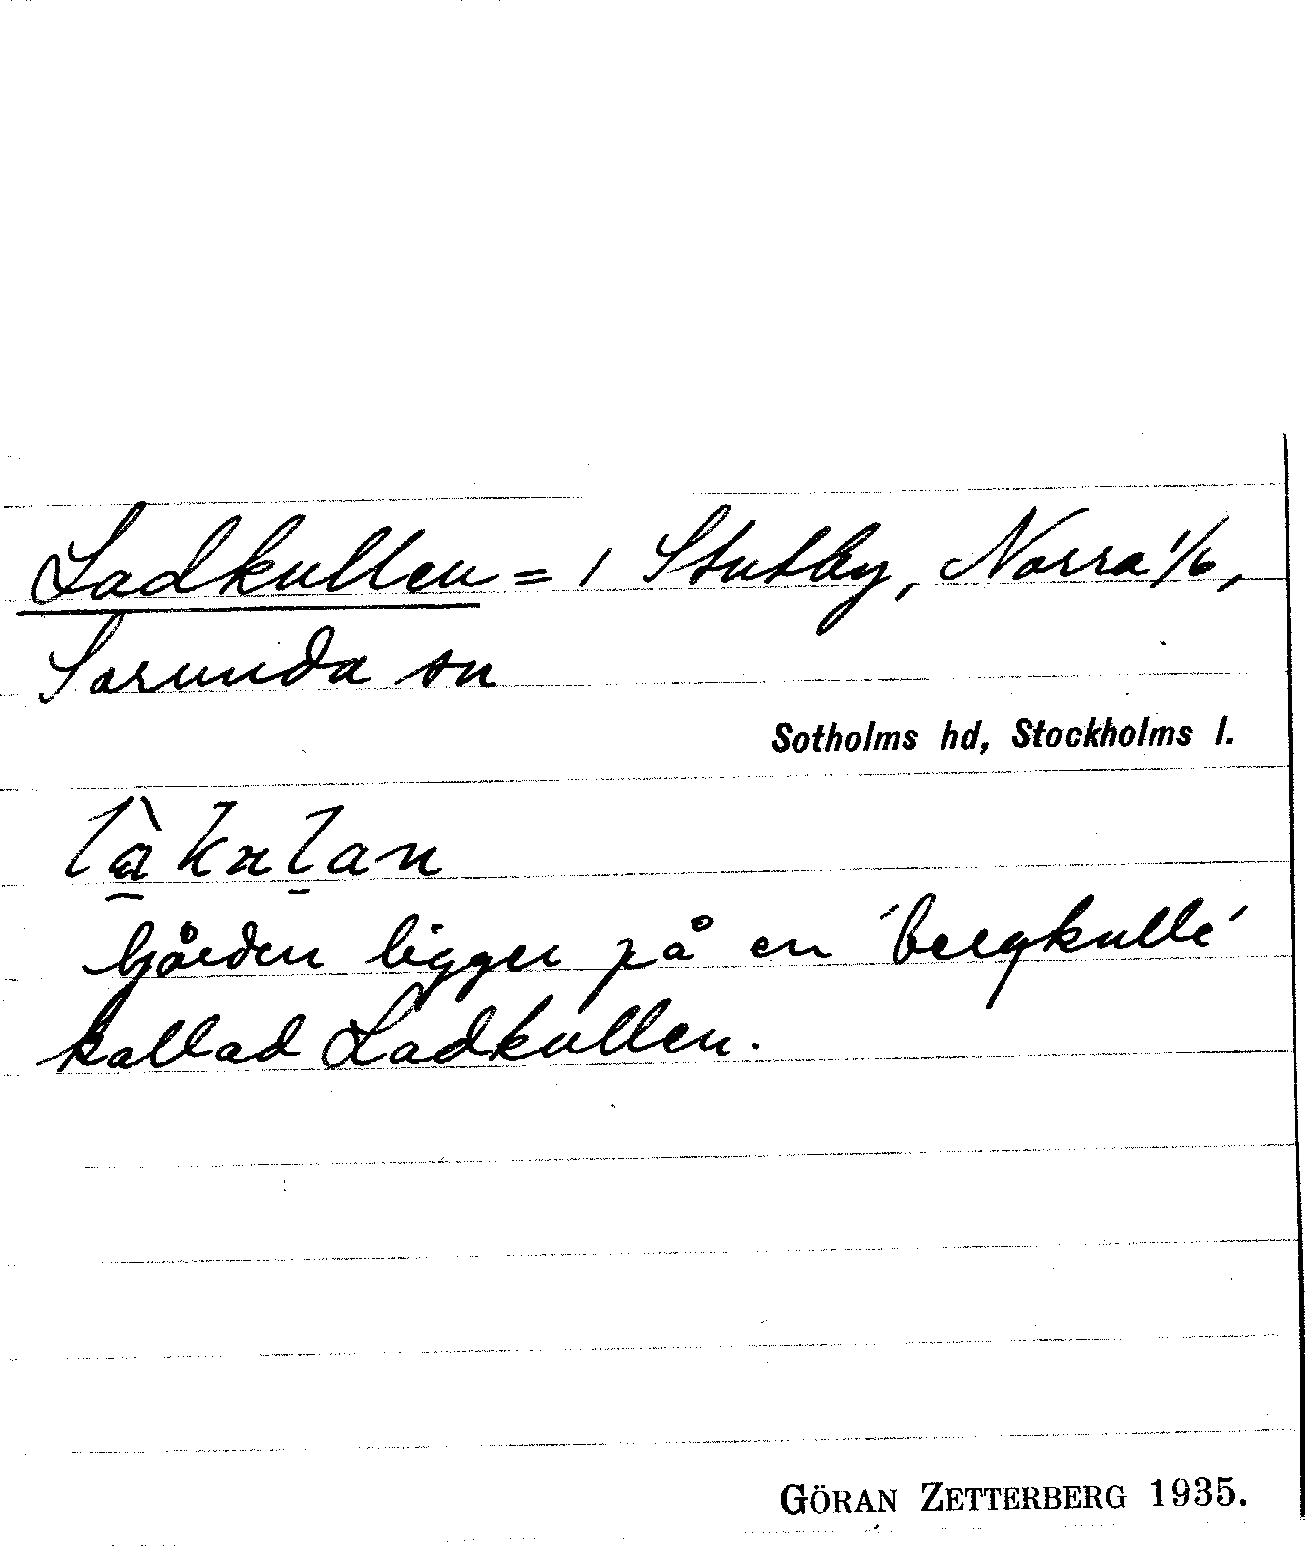 Ladkullen = 1 Stutby, Norra 1/6,
Sorunda sn
Sotholms hd, Stockholms l.
gården ligger på en 'bergkulle'
kallad Ladkullen.
GÖRAN ZETTERBERG 1935.